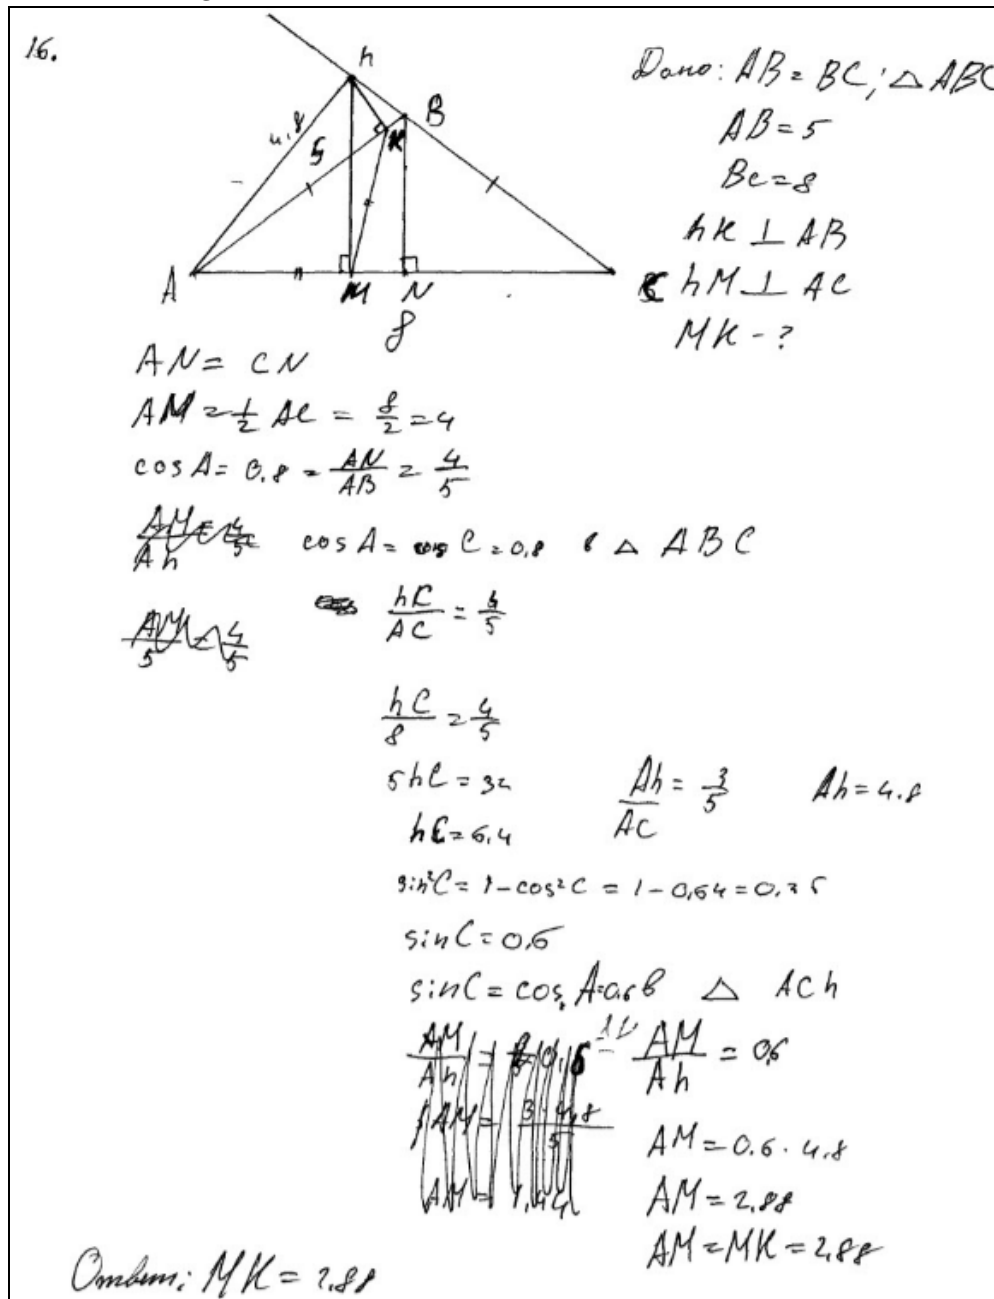 16.
h
B
K
4.8
5
A
M
N
C
8
Дано: AB = BC; △ ABC
AB = 5
Bc = 8
hK ⊥ AB
hM ⊥ AC
MK - ?
AN = CN
AM = 1/2 AC = 8/2 = 4
cos A = 0.8 = AN/AB = 4/5
cos A = cos C = 0.8 в △ ABC
hC/AC = 4/5
hC/8 = 4/5
5hC = 32
hC = 6,4
Ah/AC = 3/5
Ah = 4.8
sin²C = 1 - cos²C = 1 - 0,64 = 0,36
sin C = 0,6
sin C = cos A = 0.6 в △ ACh
AM/Ah = 0,6
AM = 0.6 · 4.8
AM = 2,88
AM = MK = 2,88
Ответ: MK = 2,88